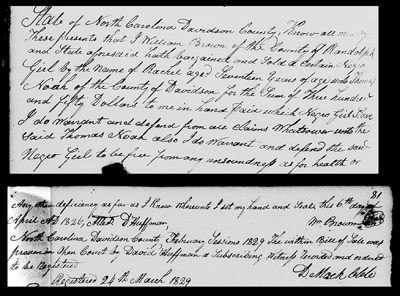 State of North Carolina Davidson County, Know all men by
These presents that I William Brown of the County of Randolph
and State aforesaid hath Bargained and Sold a Certain Negro
Girl by the Name of Rachel aged Seventeen Years of age unto Thomas
Noah of the County of Davidson for the Sum of Three hundred
and fifty Dollars to me in hand paid which Negro Girl I
I do Warrant and defend from all Claims Whatsoever unto the
said Thomas Noah also I do Warrant and defend the said
Negro Girl to be free from any unsoundness as for health or
81
Any other deficiency as far as I know Whereunto I set my hand and Seal this 6th day of
April AD 1826, Attest D Huffman Wm Brown
North Carolina Davidson County February Sessions 1829 The within Bill of Sale was
proven in Open Court by David Huffman a Subscribing Witness Recorded and ordered
to be Registered
Registered 24th March 1829 D Mock